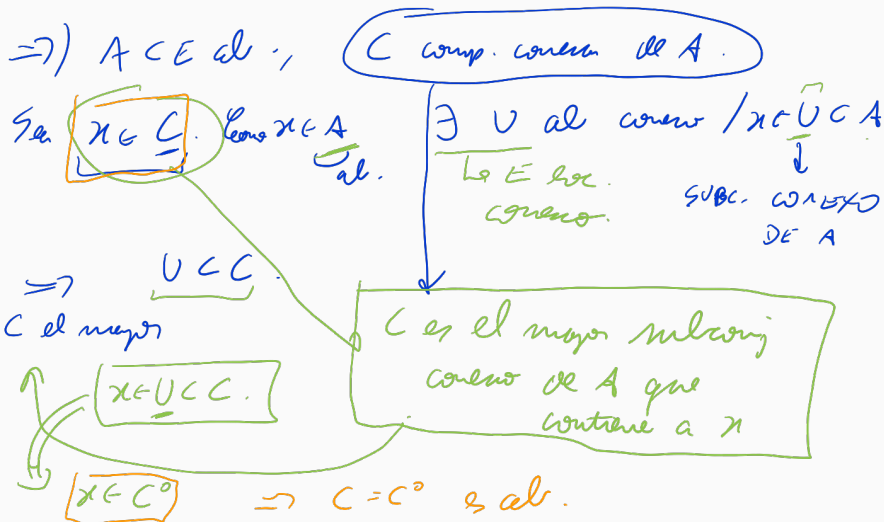 ⇒) A ⊂ E ab., C comp. conexa de A.
Sea x ∈ C. Como x ∈ A ab. ∃ U ab conexo / x ∈ U ⊂ A
Lo E loc. conexo.
SUBC. CONEXO DE A
⇒ U ⊂ C.
C el mayor
C es el mayor subconj
conexo de A que
contiene a x
x ∈ U ⊂ C.
x ∈ C° ⇒ C = C° es ab.